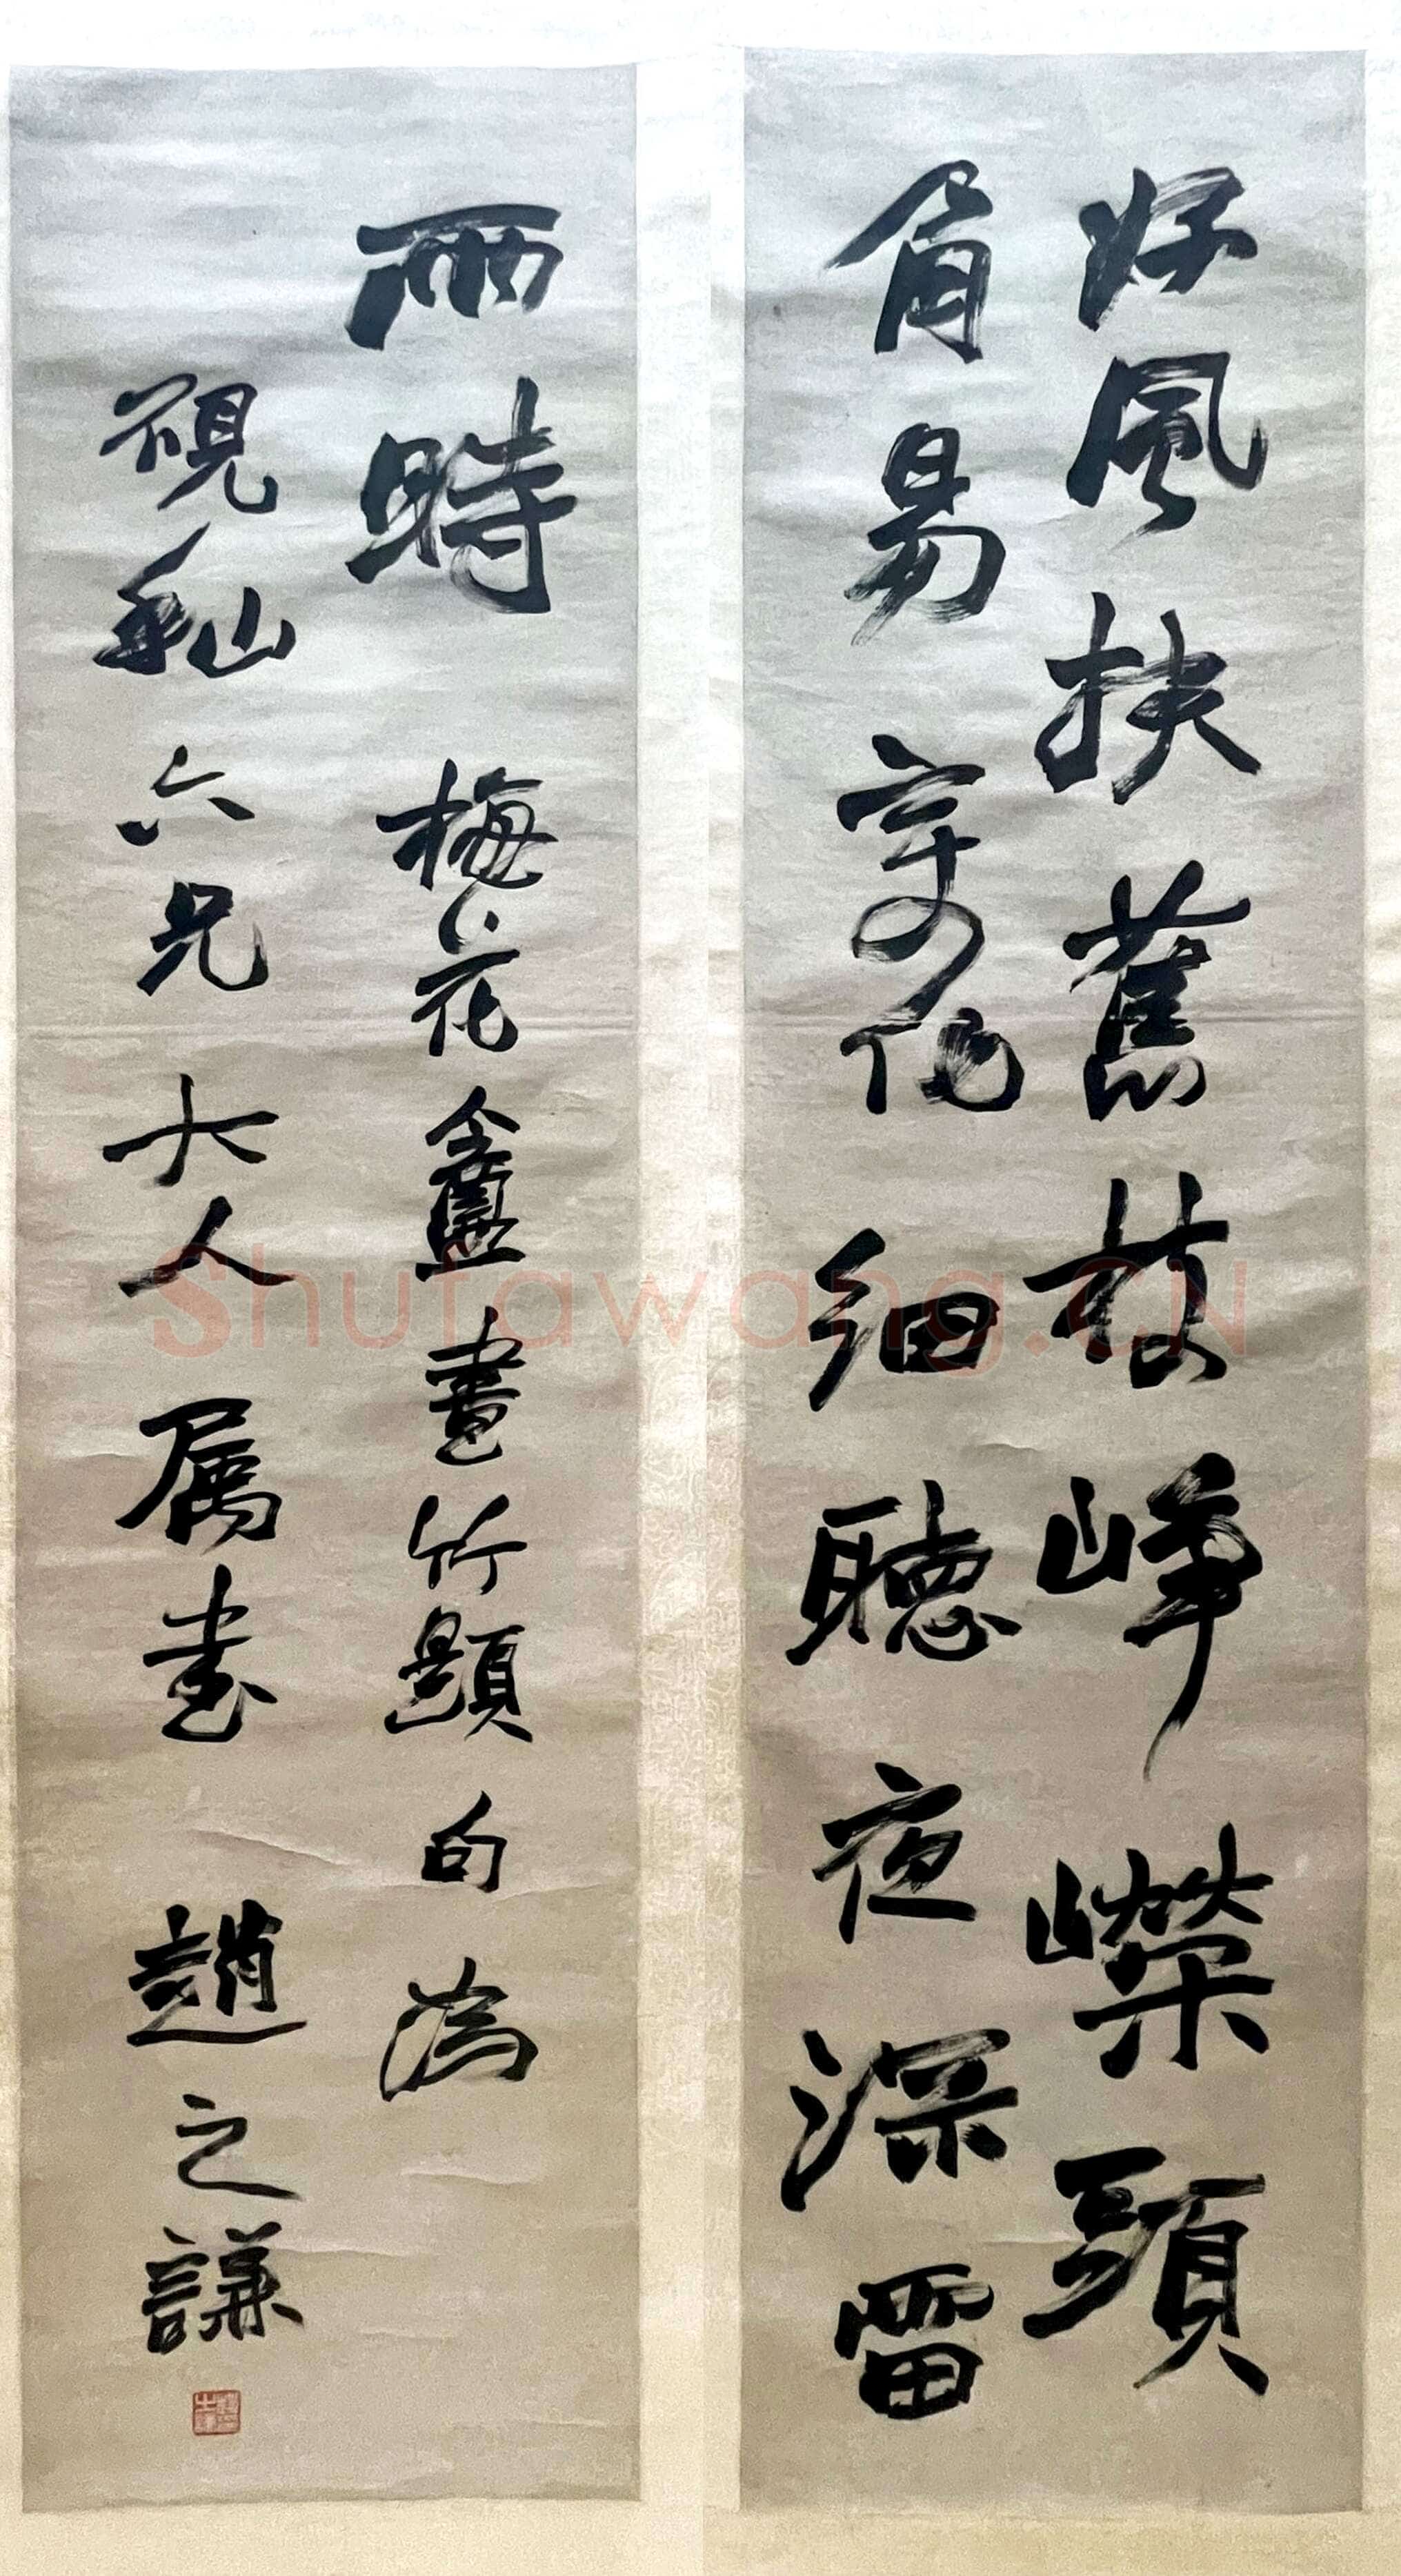 好風扶舊枝崢嶸頭
角易變化細聽夜深雷
雨時 梅花盦畫竹題句為
硯秈六兄大人屬書 趙之謙
Shufawang.CN